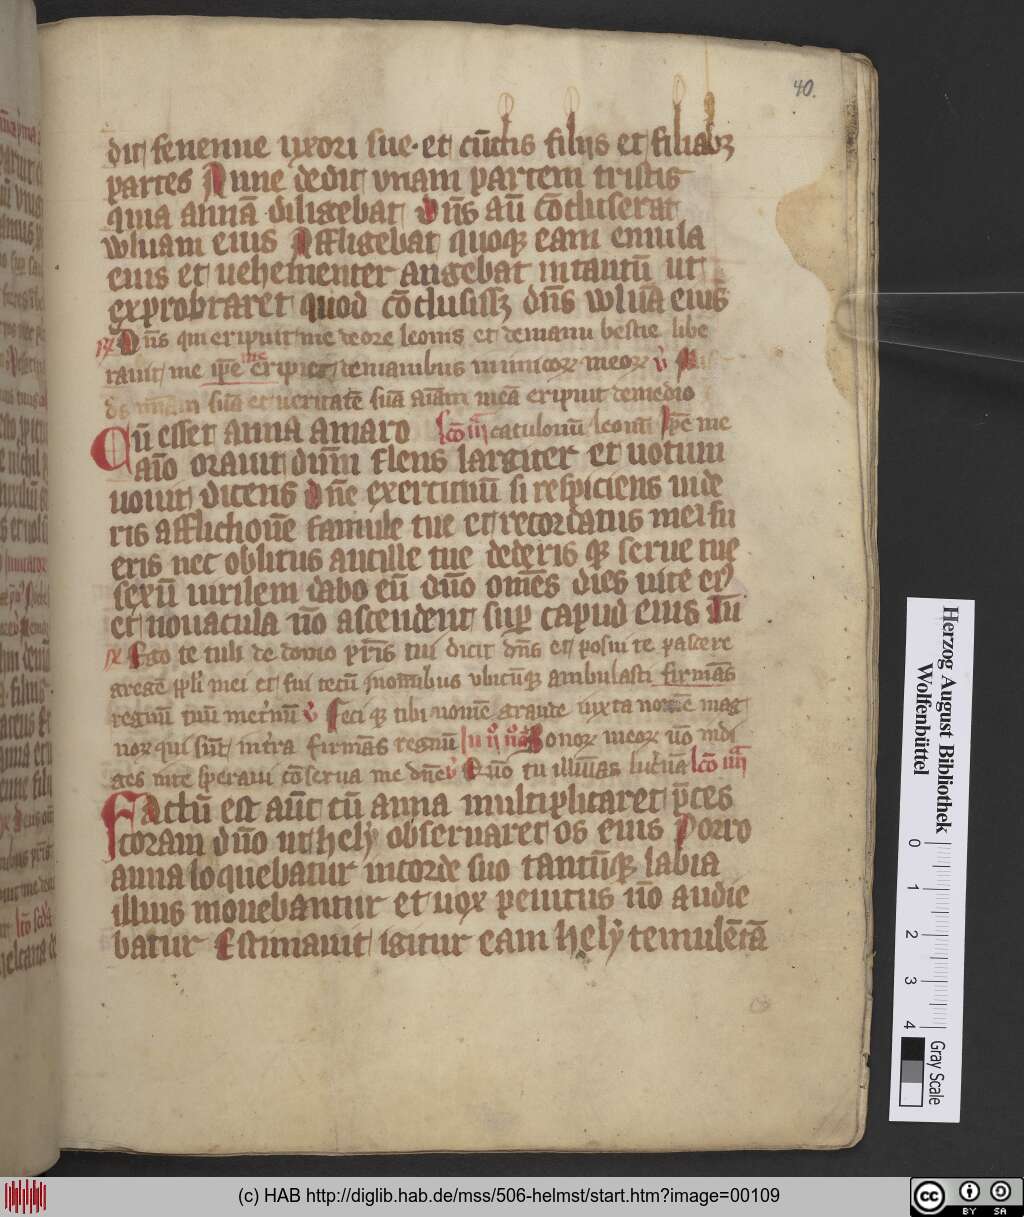 40.
dit fenenne uxori sue · et cūctis filijs et filiabꝫ
partes Anne dedit vnam partem tristis
quia annā diligebat dn̄s aūt cōcluserat
wluam eius Affligebat quoqꝫ eam emula
eius et uehementer angebat intantū ut
exprobraret quod cōclusissꝫ dn̄s wluā eius
Dn̄s qui eripuit me de ore leonis et de manu bestie libe
rauit me ip̄e me eripiet de manibus inimicoꝝ meoꝝ
dꝰ suā et ueritatē suā aīam meā eripuit de medio
Cū esset anna amaro lc̄o iii catulorū leonū Ip̄e me
aīo orauit dn̄m flens largiter et uotum
uouit dicens dn̄e exercituū si respiciens uide
ris afflictionē famule tue et recordatus mei fu
eris nec oblitus ancille tue dederis qꝫ serue tue
sexū uirilem dabo eū dn̄o om̄es dies uite eiꝰ
et nouacula nō ascendent sup capud eius
Ego te tuli de domo pr̄is tui dicit dn̄s et posui te pascere
gregē ppl̄i mei et fui tecū in omnibus ubicūqꝫ ambulasti firmās
regnū tuū in et̄nū v̄ Feci qꝫ tibi nomē grande iuxta nomē mag
noꝝ qui sūt in t̄ra firmās regnū In ii no Bonoꝝ meoꝝ nō indi
ges in te speraui cōserua me dn̄e v̄ Qm̄o tu illuīas luc̄nā lc̄o iiii
Factū est aūt cū anna multiplicaret p̄ces
coram dn̄o ut hely obseruaret os eius Porro
anna loquebatur in corde suo tantūqꝫ labia
illius mouebantur et uox penitus nō audie
batur Estimauit igitur eam hely temulētā
Herzog August Bibliothek
Wolfenbüttel
0 1 2 3 4
Gray Scale
(c) HAB http://diglib.hab.de/mss/506-helmst/start.htm?image=00109
cc BY SA